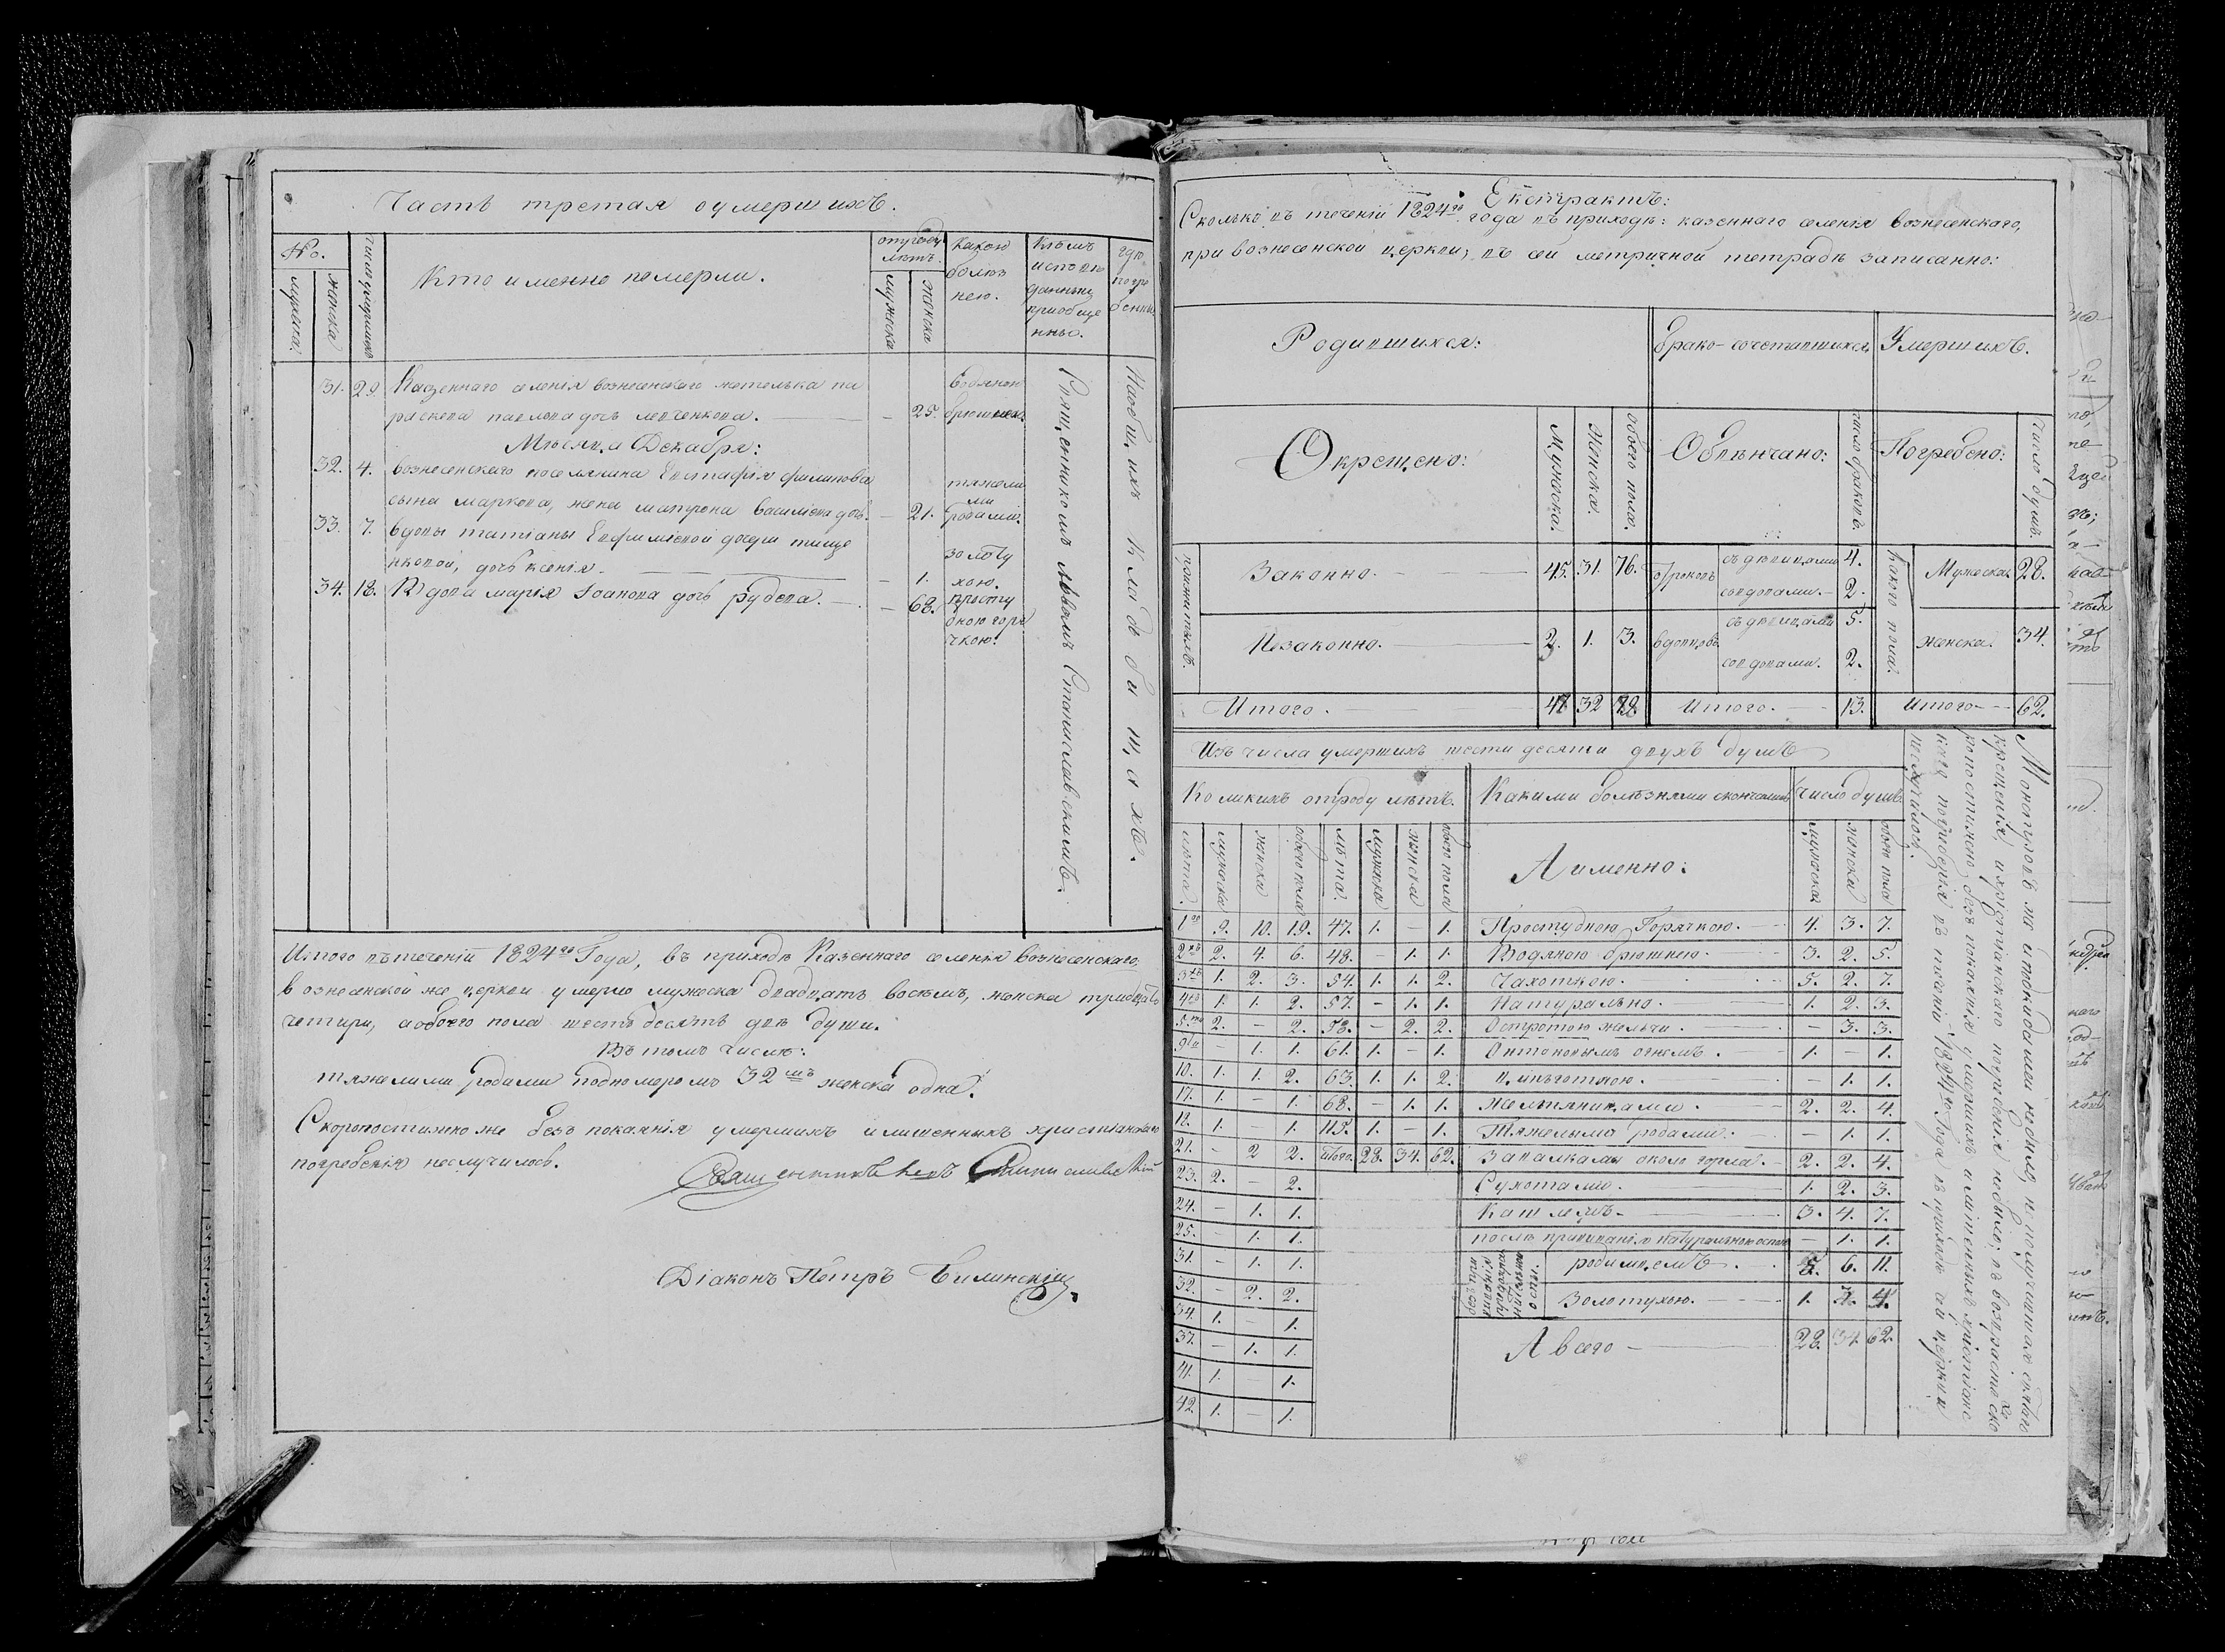 Часть третая оумершихъ.
No.
мужеска.
женска
число умершихъ
Кто именно померли.
отроду лѣтъ.
мужеска
женска
какою болѣзнею.
Кѣмъ исповѣданы и приобщенны.
гдѣ погребенны
31. 29. Казеннаго селенія вознесенскаго жителька па
раскева павлова дочь левченкова. — 25. водяною брюшною.
Мѣсяца Декабря:
32. 4. вознесенскаго поселянина Евстафія филипова
сына маркова, жена матрона василіева дочь. — 21. тяжелими родами.
33. 7. вдовы татіаны Евфиміевой дочери тище
нковой, дочь ксенія. — 1. золотухою.
34. 18. Вдова марія Іоанова дочь рубева. — 68. простудною горячкою.
Священникомъ львомъ Станиславскимъ.
Наобщихъ кладбищахъ.
Итого вътеченіи 1824го Года, въ приходѣ Казеннаго селенія вознесенскаго,
вознесенской же церкви умерло мужеска двадцать восемь, женска тридцать
четыри, аобоего пола шестьдесятъ двѣ души.
Въ томъ числѣ:
тяжелими родами подномеромъ 32мъ женска одна.
Скоропостижно же безъ покаянія умершихъ илишенныхъ христіанскаго
погребенія неслучилось.
Священникъ Левъ Станиславскій
Діаконъ Петръ Билинскій
Екстрактъ:
Сколько въ теченіи 1824го года въ приходѣ: казеннаго селенія вознесенскаго,
при вознесенской церкви; въ сей метричной тетрадѣ записанно:
Родившихся:
Брако-сочетавшихся.
Умершихъ.
Окрещено:
Мужеска.
Женска.
Обоего пола.
Обвѣнчано:
число браковъ.
Погребено:
Число душъ.
Законно. 45. 31. 76.
Незаконно. 2. 1. 3.
отроковъ съ дѣвицами 4.
совдовами. 2.
вдовцовъ съ дѣвицами 5.
совдовами. 2.
какого пола.
Мужеска. 28.
женска. 34.
Итого. 47 32 79.
Итого. 13.
Итого 62.
Изъ числа умершихъ шести десяти двухъ душъ
Коликихъ отроду лѣтъ.
Какими болѣзнями скончались
Число душъ.
лѣта.
мужеска
женска
обоего пола
лѣта.
мужеска
женска
обоего пола
А именно:
мужеска
женска
обоего пола
1го 9. 10. 19. 47. 1. — 1. Простудною Горячкою. 4. 3. 7.
2хъ 2. 4. 6. 48. — 1. 1. Водяною брюшною. 3. 2. 5.
3хъ 1. 2. 3. 54. 1. 1. 2. Чахоткою. 5. 2. 7.
4хъ 1. 1. 2. 57. — 1. 1. Натурально. 1. 2. 3.
5ти 2. — 2. 58. — 2. 2. Остротою жельчи. — 3. 3.
9ти — 1. 1. 61. 1. — 1. Онтоновымъ огнемъ. 1. — 1.
10. 1. 1. 2. 63. 1. 1. 2. цынготною. — 1. 1.
17. 1. — 1. 68. — 1. 1. Желтяницами. 2. 2. 4.
18. 1. — 1. 115. 1. — 1. Тяжелыми родами. — 1. 1.
21. — 2 2. Итого. 28. 34. 62. Запалками около горла. 2. 2. 4.
23. 2. — 2. Сухотами. 1. 2. 3.
24. — 1. 1. Кашлемъ. 3. 4. 7.
25. — 1. 1. послѣ прививанія натуральною оспою — 1. 1.
31. — 1. 1. родимцемъ. 5. 6. 11.
32. — 2. 2. Золотухою. 1. 3. 4.
34. 1. — 1.
37. — 1. 1. А всего — 28. 34. 62.
41. 1. — 1.
42. 1. — 1.
крещенія, ихристіанскаго погребенія небыло; въ возрастѣ ско
ропостижно безъ покаянія умершихъ илишенныхъ христіанс
каго погребенія въ теченіи 1824го Года въ приходѣ сей церкви
неслучилось.